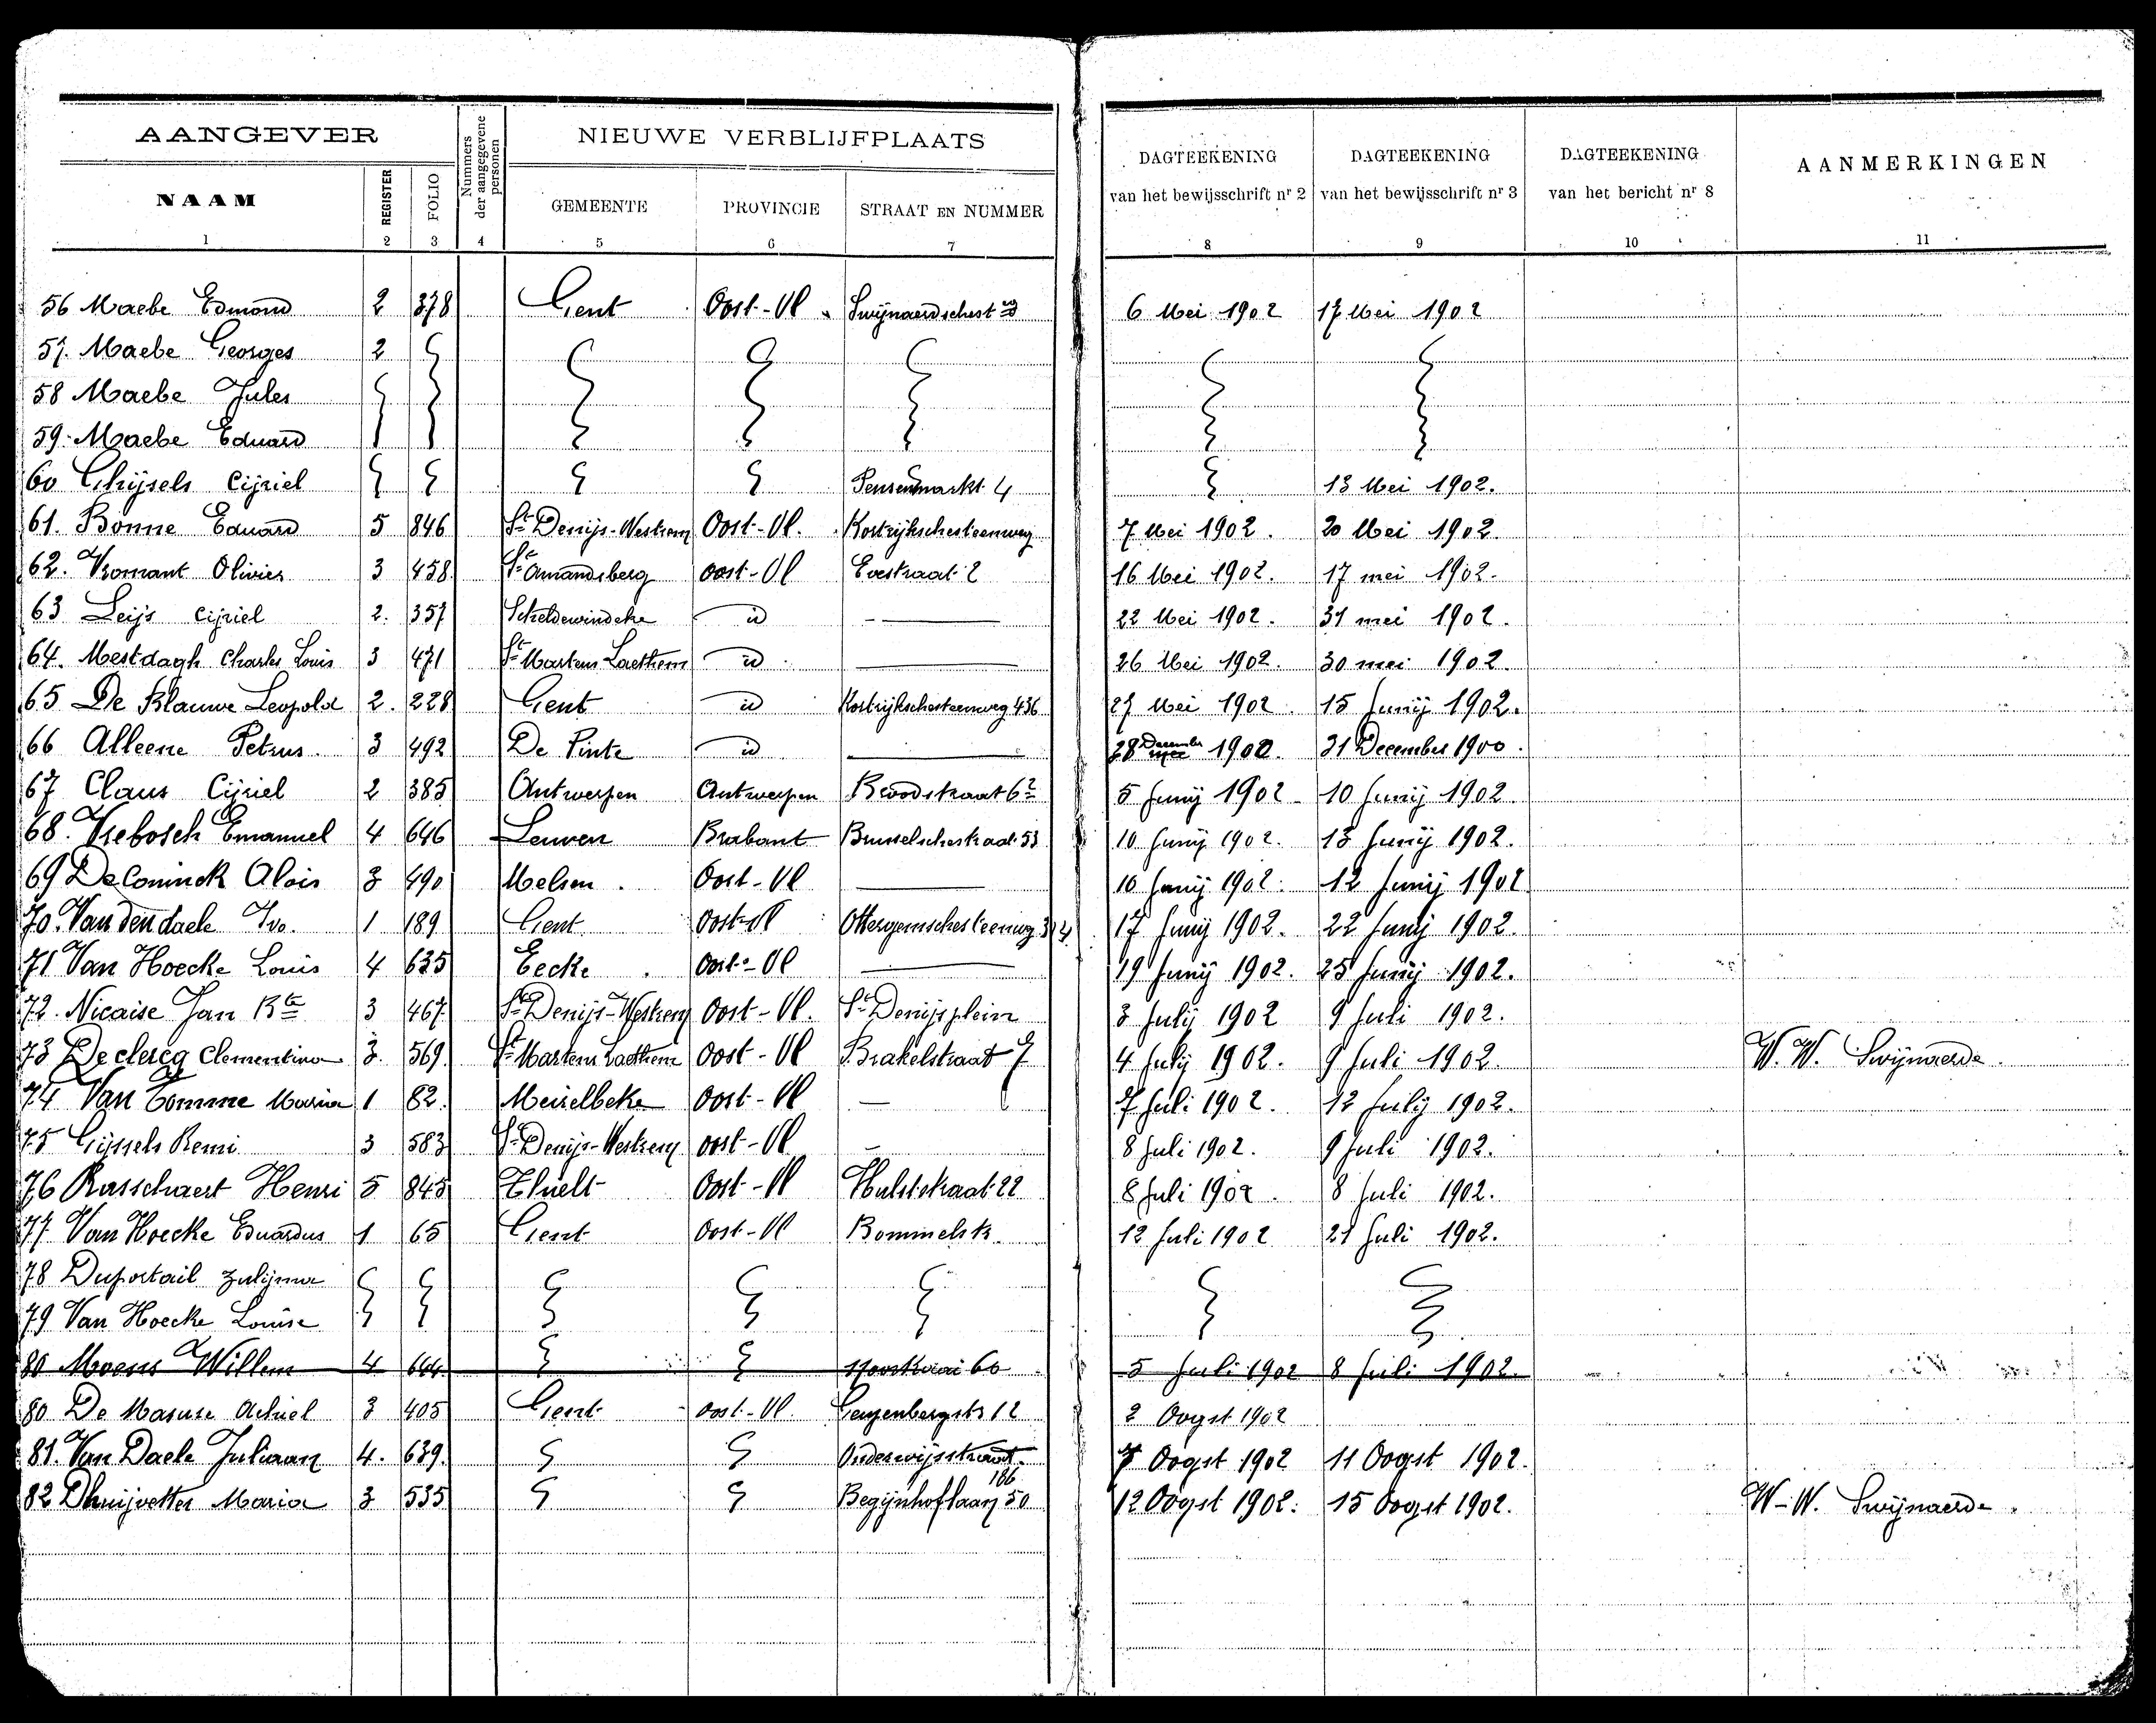 AANGEVER
Nummers der aangegevene personen
NIEUWE VERBLIJFPLAATS
DAGTEEKENING van het bewijsschrift nr 2
DAGTEEKENING van het bewijsschrift nr 3
DAGTEEKENING van het bericht nr 8
AANMERKINGEN
NAAM REGISTER FOLIO GEMEENTE PROVINCIE STRAAT EN NUMMER
1 2 3 4 5 6 7 8 9 10 11
56 Maebe Edmond 2 378 Gent Oost-Vl. 6 Mei 1902 17 Mei 1902
57. Maebe Georges 2
58 Maebe Jules
59. Maebe Eduard
60 Ghijsels Cijriel Pensenmarkt 4 13 Mei 1902.
61. Bonne Eduard 5 846 St Denijs-Westrem Oost-Vl. Kortrijkschesteenweg 7 Mei 1902. 20 Mei 1902.
62. Vromant Olivier 3 458 St Amandsberg Oost-Vl 16 Mei 1902. 17 mei 1902.
63 Leijs Cijriel 2. 357 Scheldewindeke id — 22 Mei 1902. 31 mei 1902.
64. Mestdagh Charles Louis 3 471 St Martens Laethem id — 26 Mei 1902. 30 mei 1902.
65 De Blauwe Leopold 2. 228 Gent id Kortrijkschesteenweg 436 27 Mei 1902. 15 Junij 1902.
66 Alleene Petrus 3 492 De Pinte id — 28 December 31 December 1900.
67 Claus Cijriel 2 385 Antwerpen Antwerpen 5 Junij 1902 10 Junij 1902.
68. Vrebosch Emanuel 4 646 Leuven Brabant Brusselschestraat 53 10 Junij 1902. 13 Junij 1902.
69 De Coninck Alois 3 490 Melsen. Oost-Vl — 10 Junij 1902. 12 Junij 1902
70. Van den daele Ivo. 1 189 Gent Oost-Vl Ottergemschesteenweg 17 Junij 1902. 22 Junij 1902.
71 Van Hoecke Louis 4 635 Eecke. Oost-Vl — 19 Junij 1902. 25 Junij 1902.
72. Nicaise Jan Bte 3 467. St Denijs-Westrem Oost-Vl. St Denijsplein 3 Julij 1902 9 Juli 1902.
73 Declercq Clementina 3. 569. St Martens Laethem Oost-Vl Brakelstraat 7 4 Julij 1902. 9 Juli 1902. W. W. Swijnaerde.
74 Van Tomme Maria 1 82. Meirelbeke Oost-Vl — 7 Juli 1902. 12 Julij 1902.
75 Gijssels Remi 3 583 St Denijs-Westrem Oost-Vl — 8 Juli 1902. 9 Juli 1902.
76 Rasschaert Henri 5 845 Thielt Oost-Vl Hulststraat 22 8 Juli 1902. 8 Juli 1902.
77. Van Hoecke Eduardus 1 65 Gent Oost-Vl Bommelstr. 12 Juli 1902 21 Juli 1902.
78 Duportail Zulijma
79 Van Hoecke Louise
80 Moens Willem 4 644 60 5 Juli 1902 8 Juli 1902.
80 De Masure Achiel 3 405 Gent Oost-Vl. 12 2 Oogst 1902
81. Van Daele Juliaan 4. 639. Onderwijsstraat. 7 Oogst 1902 11 Oogst 1902.
186
82 Dhuijvetter Maria 3 535 Begijnhoflaan 50 12 Oogst 1902. 15 Oogst 1902. W-W. Swijnaerde.